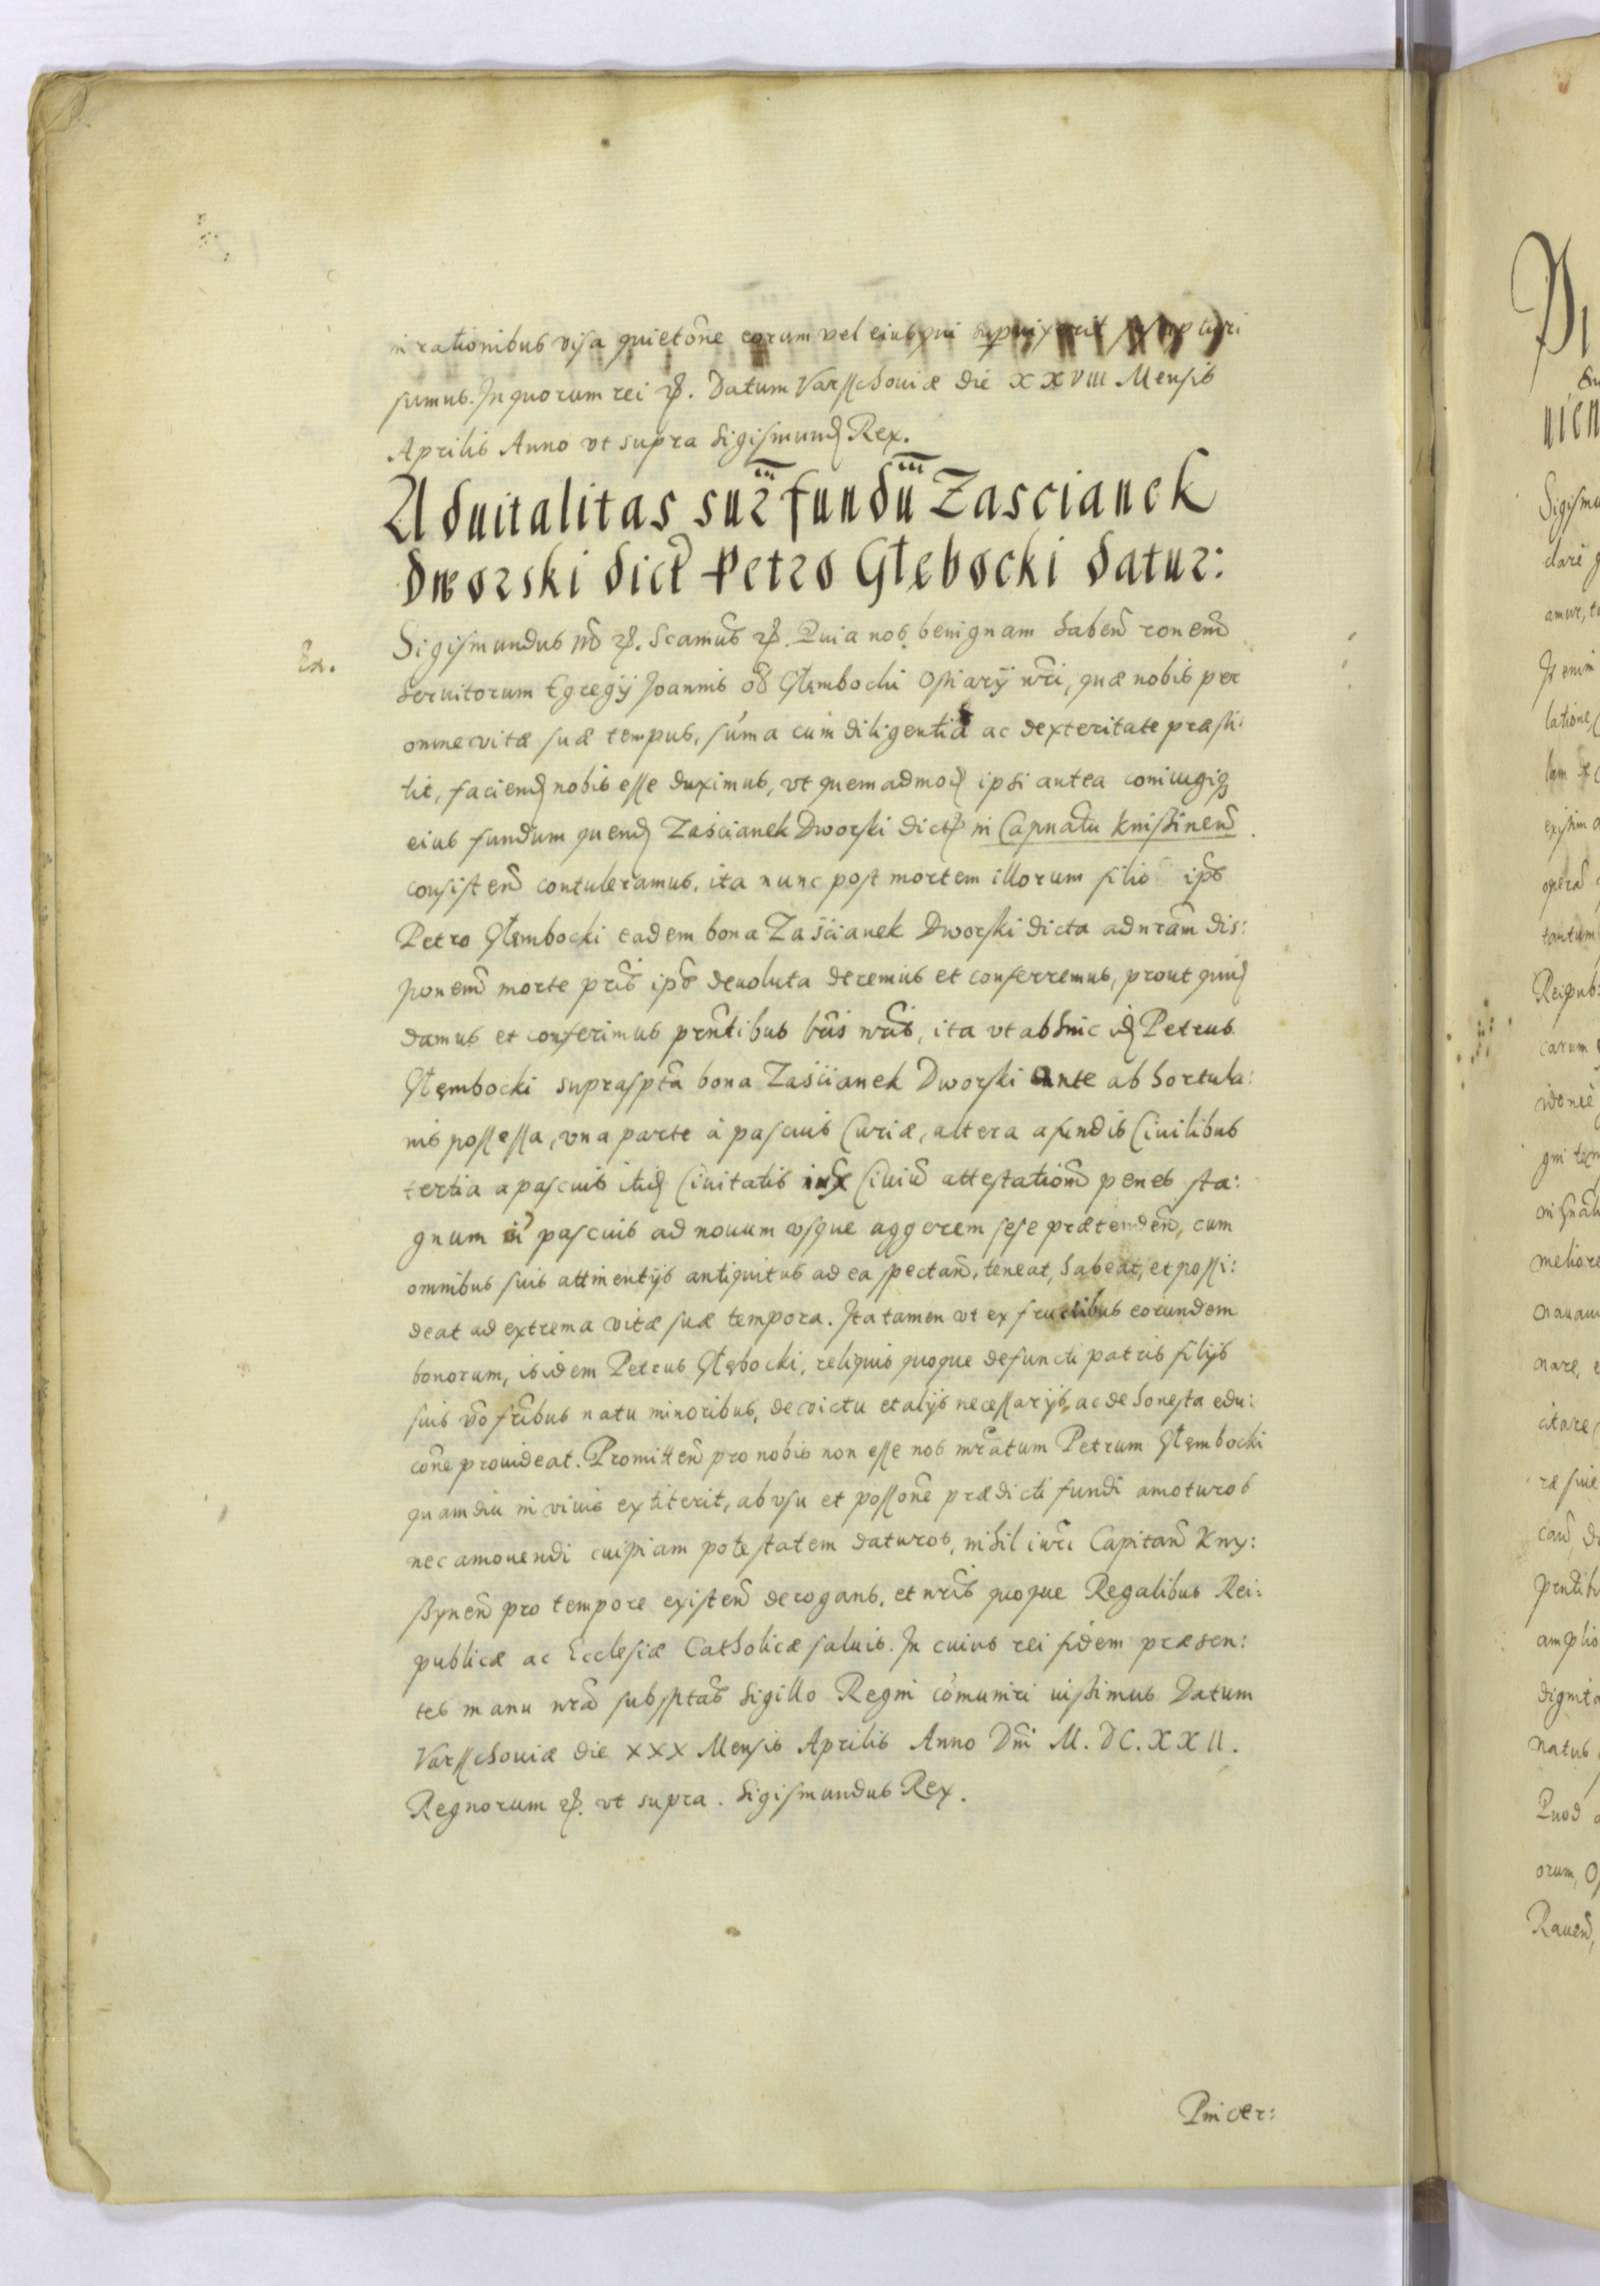 in rationibus visa quietōne eorum vel eius qui supuixerit suscepturi
sumus. In quorum rei etc. Datum Varsschouiæ die XXVIII Mensis
Aprilis Anno vt supra Sigismund Rex.
Aduitalitas sup fundū Zascianek
Dworski dict Petro Głębocki datur:
Ex.
Sigismundus III etc. Scamus etc. Quia nos benignam haben ronem
Seruitorum Egregij Joannis od Głęmbocki Ostiarij nri, quæ nobis per
omne vitæ suæ tempus, suma cum diligentia ac dexteritate præsti:
tit, faciend nobis esse duximus, vt quemadmod ipsi antea coniugiq
eius fundum quend Zaścianek Dworski dict in Capnatu Knissinen
consisten contuleramus, ita nunc post mortem illorum filio ips
Petro Głęmbocki eadem bona Zaścianek Dworski dicta ad nram dis:
ponem morte pris ips deuoluta daremus et conferremus, prout quid
damus et conferimus prntibus lris nris, ita vt ab hinc id Petrus
Głęmbocki suprasptа bona Zaścianek Dworski ante ab hortula:
nis possessa, vna parte à pascuis Curiæ, altera a fundis Ciuilibus
tertia a pascuis itid Ciuitatis iux Ciuiu attestationem penes sta:
gnum in pascuis ad nouum vsque aggerem sese prætenden, cum
omnibus suis attinentijs antiquitus ad ea spectan, teneat, habeat, et possi:
deat ad extrema vitæ suæ tempora. Ita tamen vt ex fructibus eorundem
bonorum, is idem Petrus Głębocki, reliquis quoque defuncti patris filijs
suis vo fribus natu minoribus, de victu et alijs necessarijs, ac de honesta edu:
cone prouideat. Promitten pro nobis non esse nos mratum Petrum Głęmbocki
quamdiu in viuis extiterit, ab vsu et possone prædicti fundi amoturos
nec amouendi cuipiam potestatem daturos, nihil iuri Capitan Kny:
ssynen pro tempore existen derogans, et nris quoque Regalibus Rei:
publicæ ac Ecclesiæ Catholicæ saluis. In cuius rei fidem præsen:
tes manu nra subsptas Sigillo Regni cómuniri iussimus Datum
Varsschouiæ die XXX Mensis Aprilis Anno Dni M. DC. XXII.
Regnorum etc. vt supra. Sigismundus Rex.
Pincer: